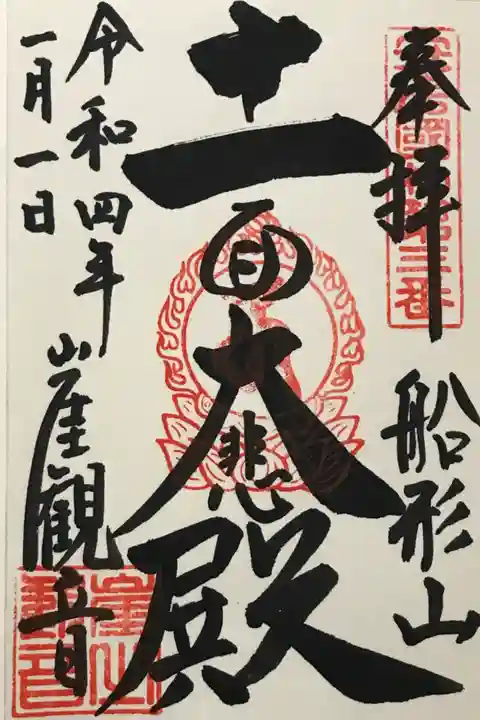 奉拝
船形山
十一面大悲殿
令和四年
一月一日
崖観音